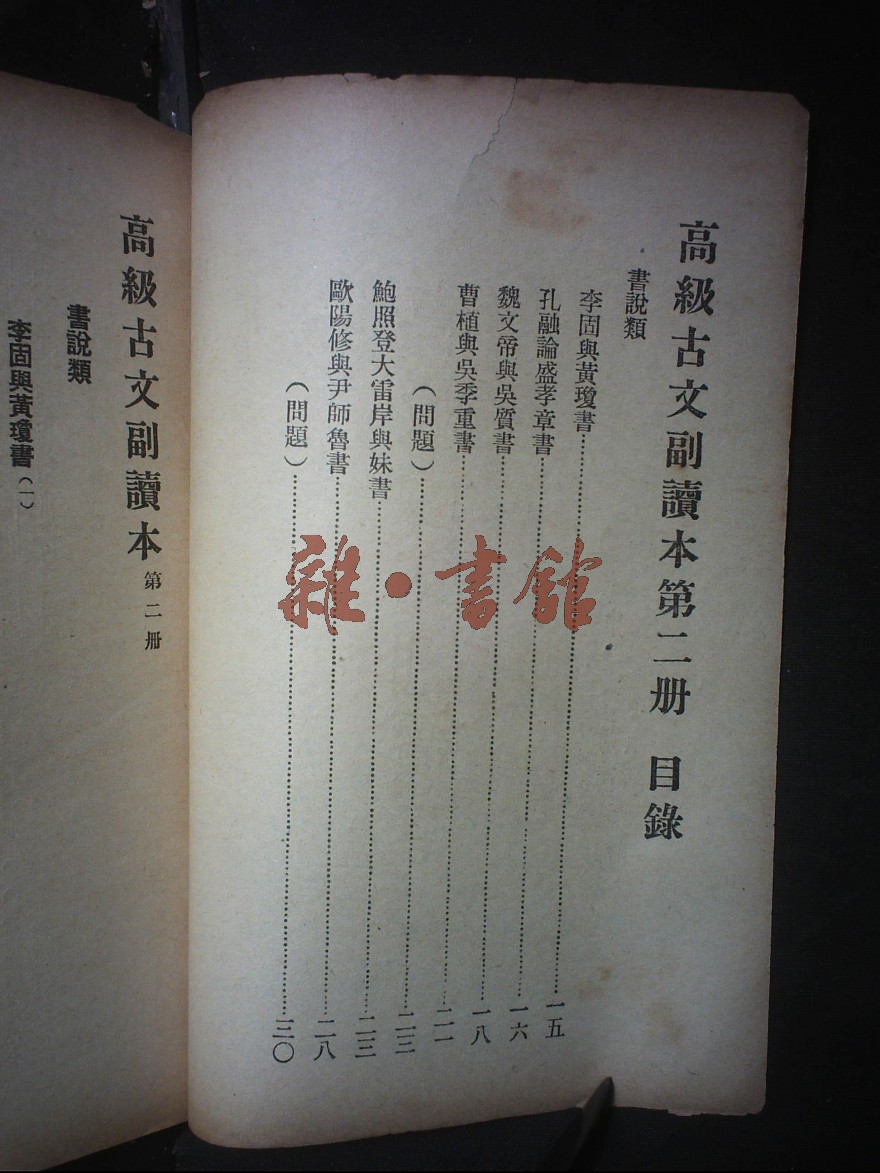 高級古文副讀本第二册　目錄
書說類
李固與黃瓊書……一五
孔融論盛孝章書……一六
魏文帝與吳質書……一八
曹植與吳季重書……二一
（問題）……
鮑照登大雷岸與妹書……二三
歐陽修與尹師魯書……二八
（問題）……三〇
雜·書館
高級古文副讀本 第二册
書說類
李固與黃瓊書（一）